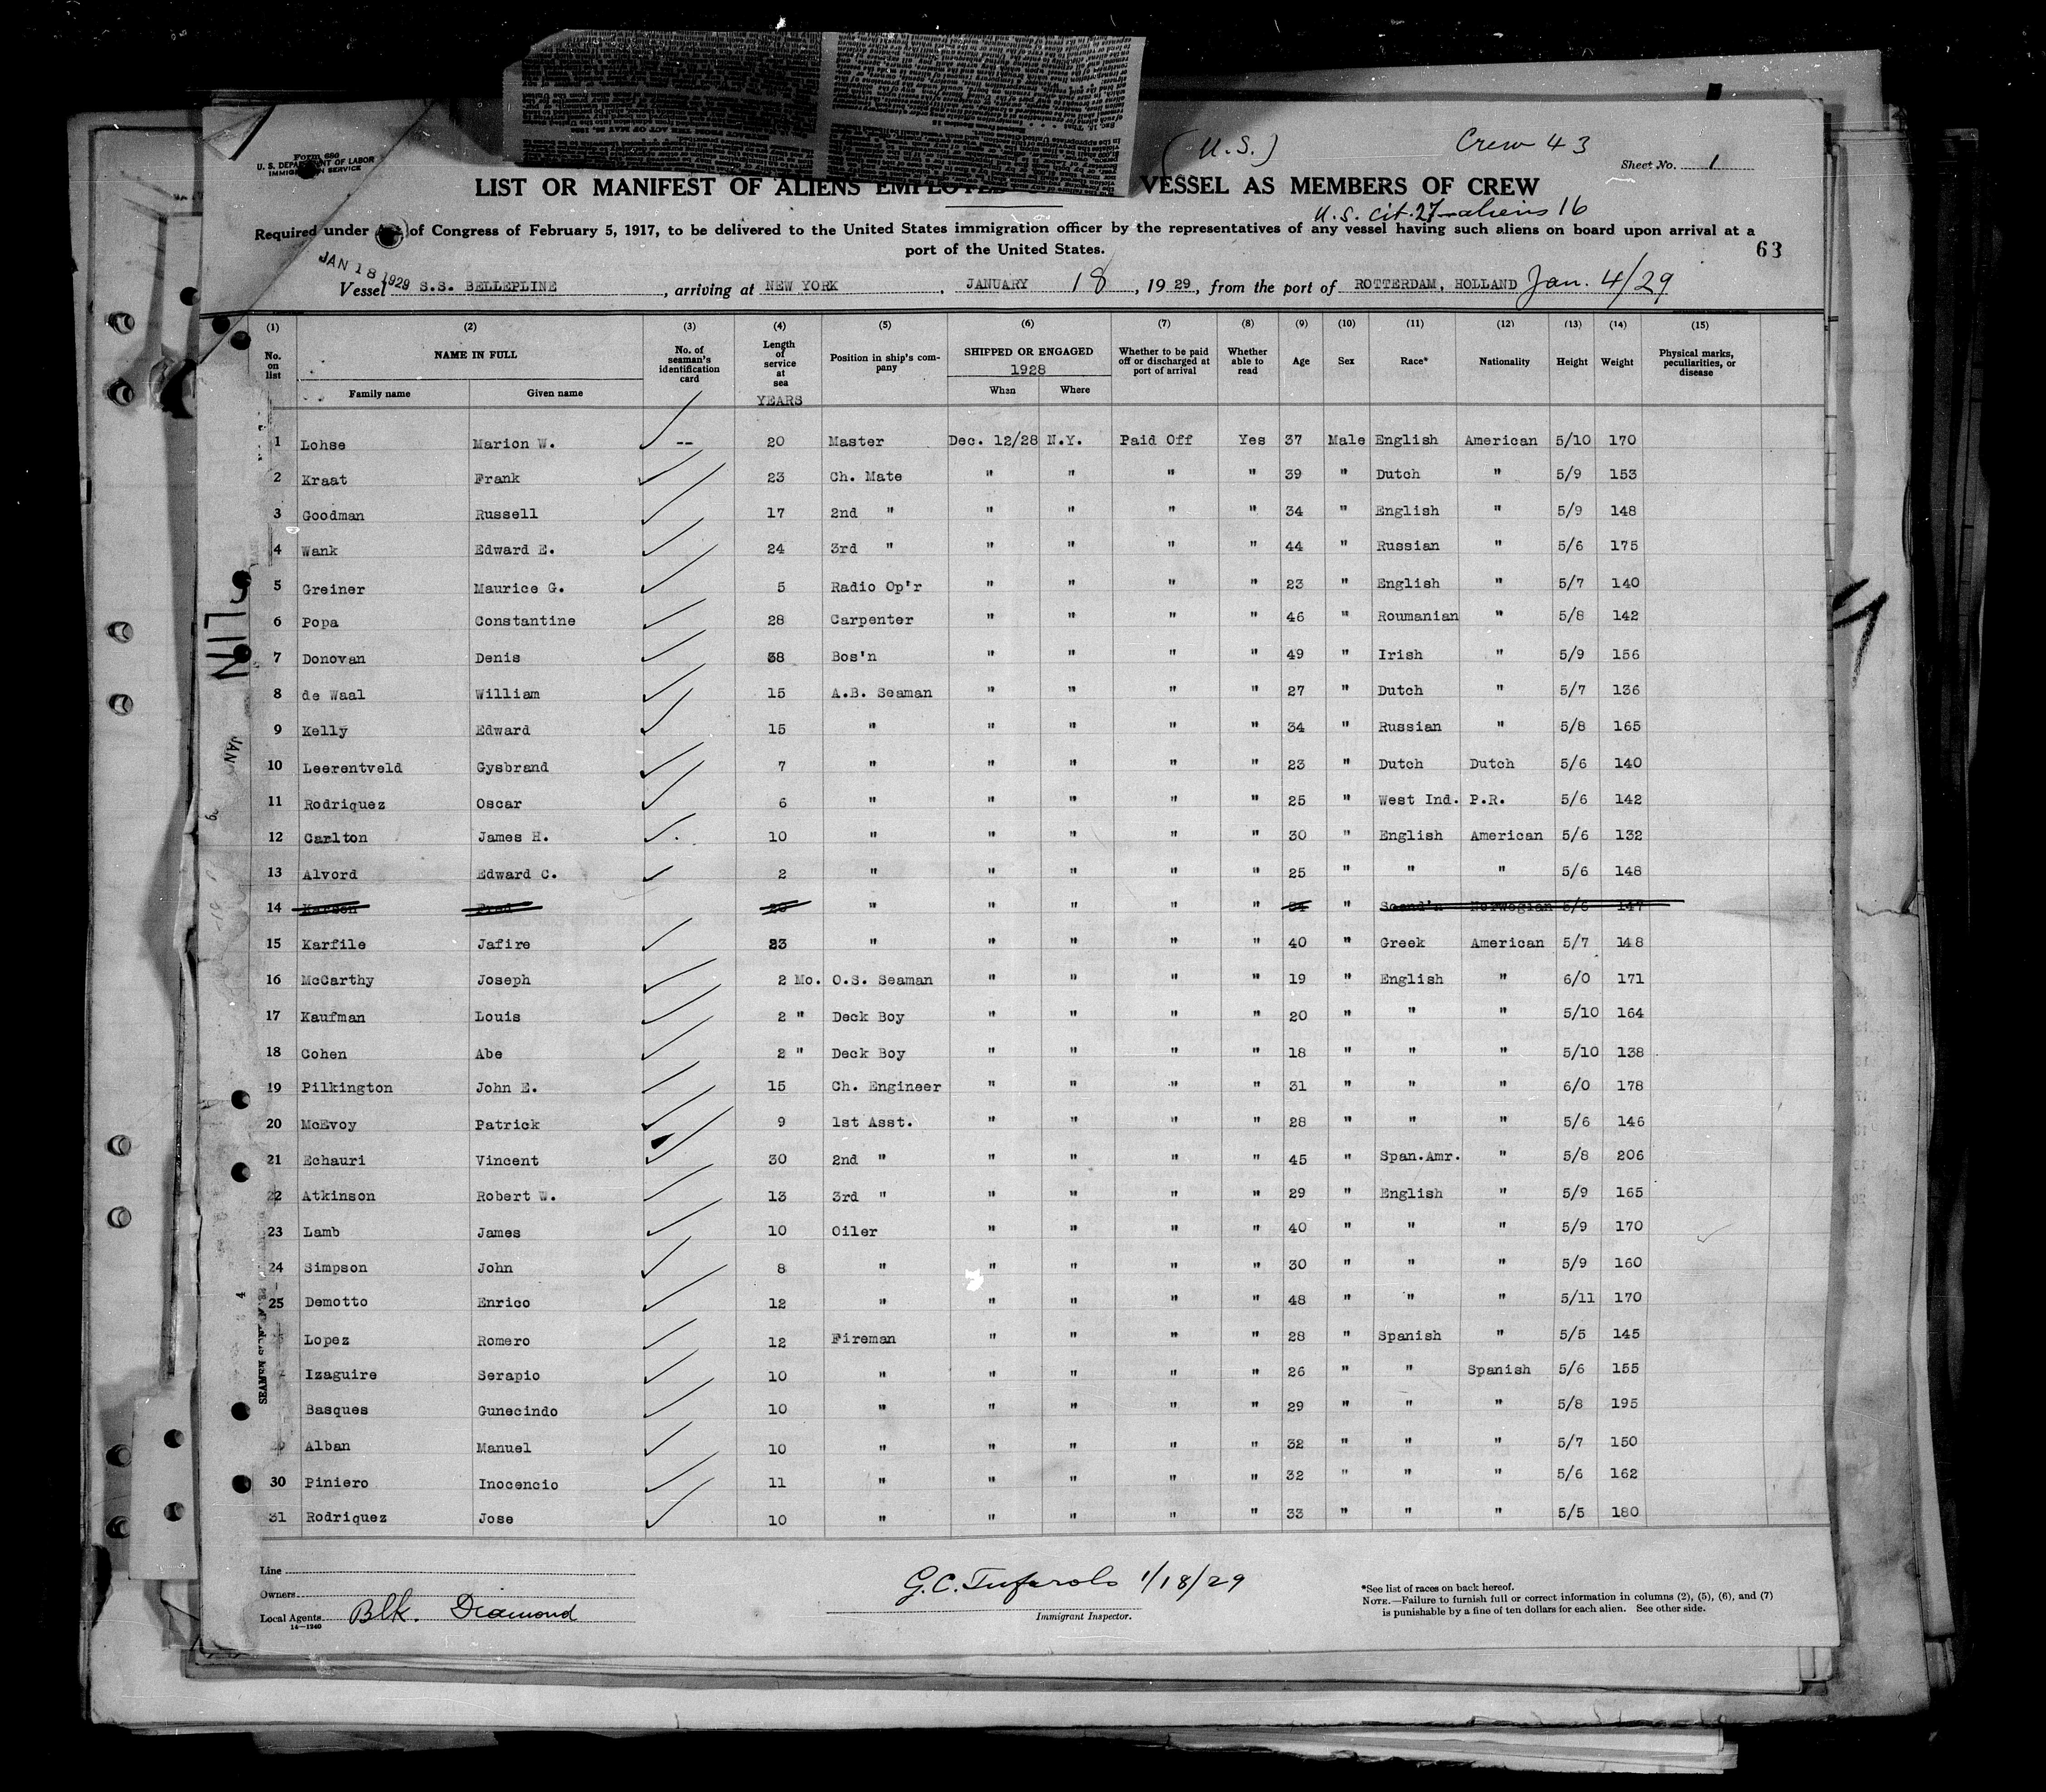 (U.S.)
Crew 43
Form 680
U. S. DEPARTMENT OF LABOR
IMMIGRATION SERVICE
Sheet No. 1
LIST OR MANIFEST OF ALIENS EMPLOYED VESSEL AS MEMBERS OF CREW
U.S. cit. 27 aliens 16
Required under Act of Congress of February 5, 1917, to be delivered to the United States immigration officer by the representatives of any vessel having such aliens on board upon arrival at a
port of the United States.
63
JAN 18 1929
Vessel S.S. BELLEPLINE, arriving at NEW YORK, JANUARY 18, 1929, from the port of ROTTERDAM, HOLLAND Jan. 4/29
(1) (2) (3) (4) (5) (6) (7) (8) (9) (10) (11) (12) (13) (14) (15)
No. on list NAME IN FULL Family name Given name No. of seaman's identification card Length of service at sea YEARS Position in ship's company SHIPPED OR ENGAGED 1928 When Where Whether to be paid off or discharged at port of arrival Whether able to read Age Sex Race* Nationality Height Weight Physical marks, peculiarities, or disease
1 Lohse Marion W. -- 20 Master Dec. 12/28 N.Y. Paid Off Yes 37 Male English American 5/10 170
2 Kraat Frank 23 Ch. Mate " " " " 39 " Dutch " 5/9 153
3 Goodman Russell 17 2nd " " " " " 34 " English " 5/9 148
4 Wank Edward E. 24 3rd " " " " " 44 " Russian " 5/6 175
5 Greiner Maurice G. 5 Radio Op'r " " " " 23 " English " 5/7 140
6 Popa Constantine 28 Carpenter " " " " 46 " Roumanian " 5/8 142
7 Donovan Denis 38 Bos'n " " " " 49 " Irish " 5/9 156
8 de Waal William 15 A.B. Seaman " " " " 27 " Dutch " 5/7 136
9 Kelly Edward 15 " " " " " 34 " Russian " 5/8 165
10 Leerentveld Gysbrand 7 " " " " " 23 " Dutch Dutch 5/6 140
11 Rodriquez Oscar 6 " " " " " 25 " West Ind. P.R. 5/6 142
12 Carlton James H. 10 " " " " " 30 " English American 5/6 132
13 Alvord Edward C. 2 " " " " " 25 " " " 5/6 148
14 Fred " " " " " " Scand'n Norwegian 5/6 147
15 Karfile Jafire 23 " " " " " 40 " Greek American 5/7 148
16 McCarthy Joseph 2 Mo. O.S. Seaman " " " " 19 " English " 6/0 171
17 Kaufman Louis 2 " Deck Boy " " " " 20 " " " 5/10 164
18 Cohen Abe 2 " Deck Boy " " " " 18 " " " 5/10 138
19 Pilkington John E. 15 Ch. Engineer " " " " 31 " " " 6/0 178
20 McEvoy Patrick 9 1st Asst. " " " " 28 " " " 5/6 146
21 Echauri Vincent 30 2nd " " " " " 45 " Span.Amr. " 5/8 206
22 Atkinson Robert W. 13 3rd " " " " " 29 " English " 5/9 165
23 Lamb James 10 Oiler " " " " 40 " " " 5/9 170
24 Simpson John 8 " " " " " 30 " " " 5/9 160
25 Demotto Enrico 12 " " " " " 48 " " " 5/11 170
Lopez Romero 12 Fireman " " " " 28 " Spanish " 5/5 145
Izaguire Serapio 10 " " " " " 26 " " Spanish 5/6 155
Basques Gunecindo 10 " " " " " 29 " " " 5/8 195
Alban Manuel 10 " " " " " 32 " " " 5/7 150
30 Piniero Inocencio 11 " " " " " 32 " " " 5/6 162
31 Rodriquez Jose 10 " " " " " 33 " " " 5/5 180
Line
Owners
Local Agents Blk. Diamond
14—1240
G.C. Tufarolo 1/18/29
Immigrant Inspector.
*See list of races on back hereof.
NOTE.—Failure to furnish full or correct information in columns (2), (5), (6), and (7)
is punishable by a fine of ten dollars for each alien. See other side.